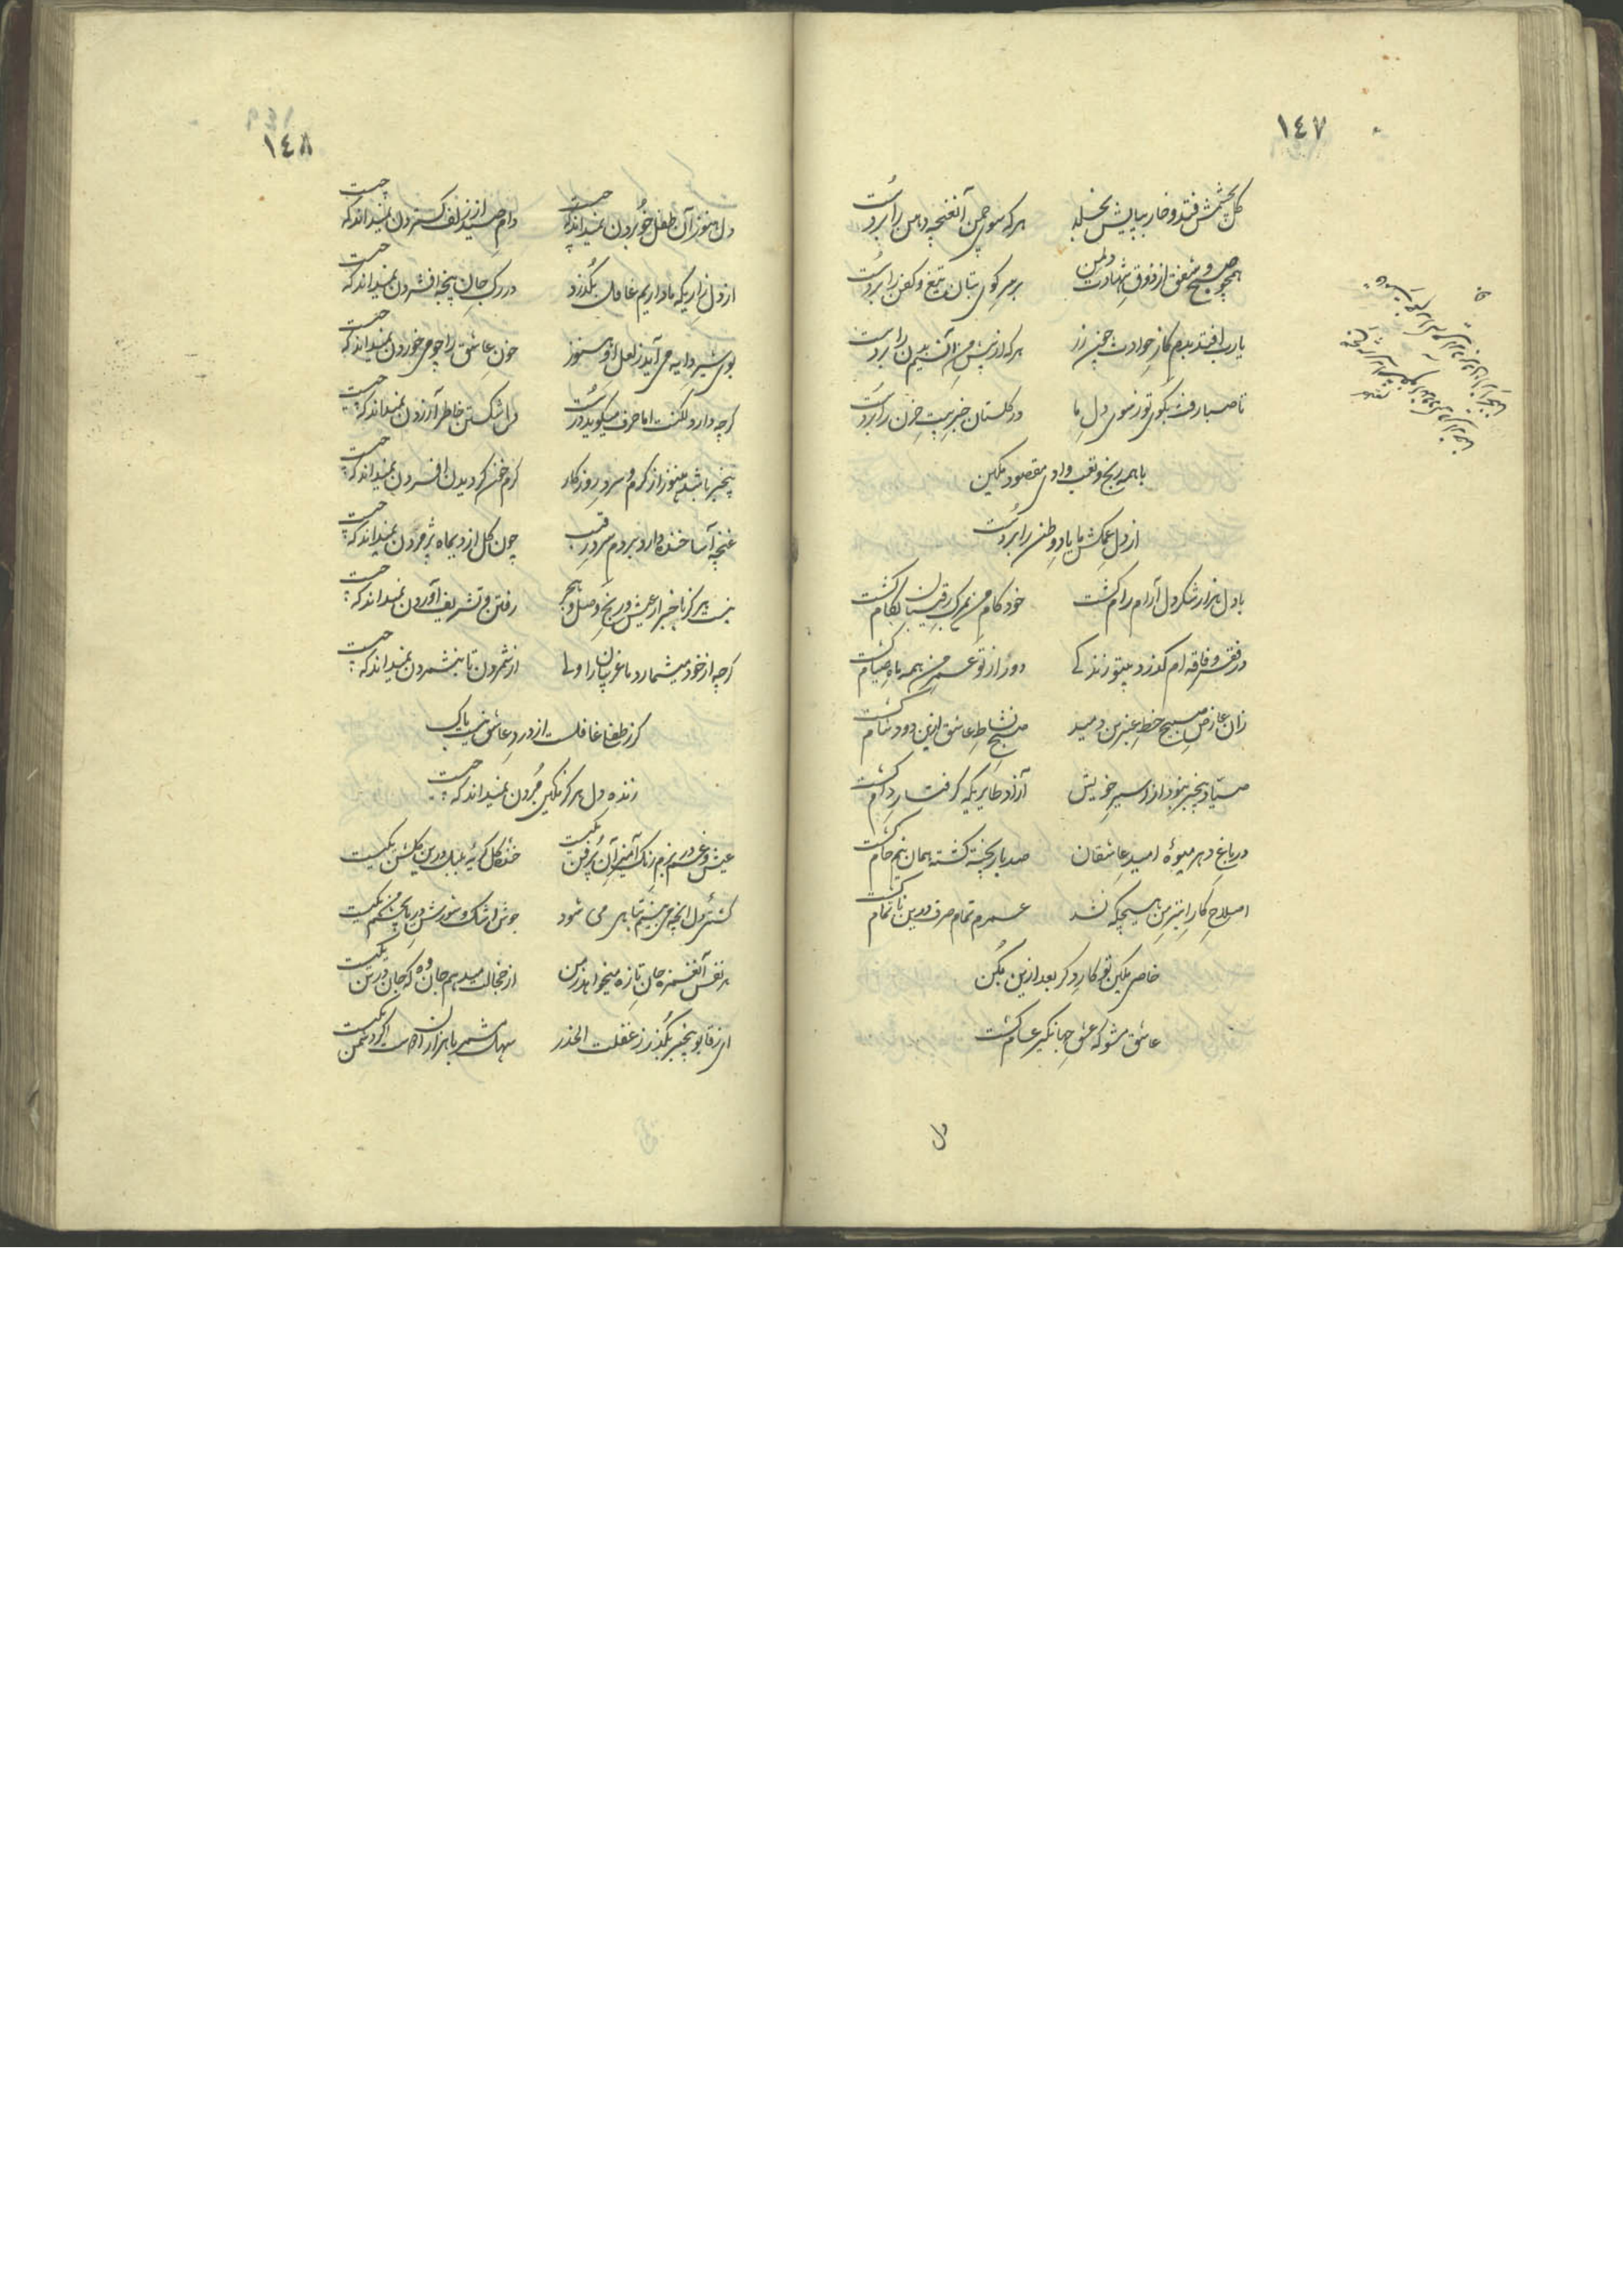 ١٤٧
گل بچشمش فتد و خار بپایش بخلد
هرکه سوی چمن آنغنچه دهن را برد است
همچو صبح و شفق از ذوق شهادت دلمن
بر سر کوی بتان تیغ و کفن را برد است
یارب افتد بدم گاز حوادث چون زر
هرکه از پیش من آن سیم بدن را برد است
تا صبا رفت بگوی تو ز سوی دل ما
در گلستان خبر بیت حزن را برد است
با همه رنج و تعب وادی مقصود مکین
از دل غمکش ما یاد وطن را برد است
با دل هزار شکر دل آرام رام گشت
خود کام من بمرگ رقیبان بکام گشت
در فقر و فاقه ام گذرد بیتو زندگی
دور از تو عمر من همه ماه صیام گشت
زان عارض صبیح خط عنبرین دمید
صبح نشاط عاشق ازین دود شام گشت
صیاد بیخبر نبود از اسیر خویش
آزاد طایریکه گرفتار دام گشت
در باغ دهر میوهٔ امید عاشقان
صد بار پخته گشته همان نیم خام گشت
اصلاح کار ابتر من هیچگه نشد
عمرم تمام صرف درین ناتمام گشت
خاصی مکین تو کار دگر بعد ازین بکن
عاشق مشو که عشق جهانگیر عام گشت
دل
١٤٨
دل هنوز آن طفل خوبردن نمیداند که چیست
دام صید از زلف گستردن نمیداند که چیست
از دل زاریکه ما داریم غافل بگذرد
در رگ جان پنجه افشردن نمیداند که چیست
بوی شیر دایه می آید ز لعل او هنوز
خون عاشق را چو می خوردن نمیداند که چیست
گرچه دارد لکنت اما حرف میگوید درست
دل شکستن خاطر آزردن نمیداند که چیست
بیخبر باشد هنوز از گرم و سرد روزگار
گرم خون گردیدن افسردن نمیداند که چیست
غنچه آسا خنده دارد بردم سرد رقیب
چون گل از دیماه پژمردن نمیداند که چیست
نیست هرگز با خبر از عیش و رنج وصل و هجر
رفتن و تشریف آوردن نمیداند که چیست
گرچه از خود میشمارد ما غریبان را ولی
از شمردن تا بنشمردن نمیداند که چیست
گر ز طفلی غافلست از درد عاشق نیست باک
زنده دل هرگز مکین مردن نمیداند که چیست
عیش و غم در بزم رنگ آمیز آن پرفن یکیست
خندهٔ گل گریهٔ بلبل درین گلشن یکیست
کشتی دل آنچه می بینم تباهی می شود
جوش اشک و شورش دریا بچشم من یکیست
هر نفس آنغمزه جان تازه میخواهد ز من
از خجالت میدهم جان وه که جان در تن یکیست
ای ز قابو بیخبر بگذر ز غفلت الحذر
سهل مشمر با هزاران دوست گر دشمن یکیست